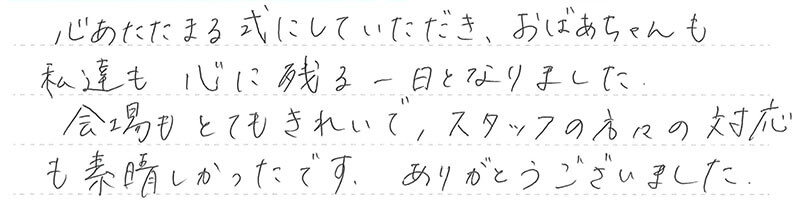 心あたたまる式にしていただき、おばあちゃんも
私達も 心に残る一日となりました.
会場もとてもきれいで, スタッフの方々の対応
も素晴しかったです. ありがとうございました.